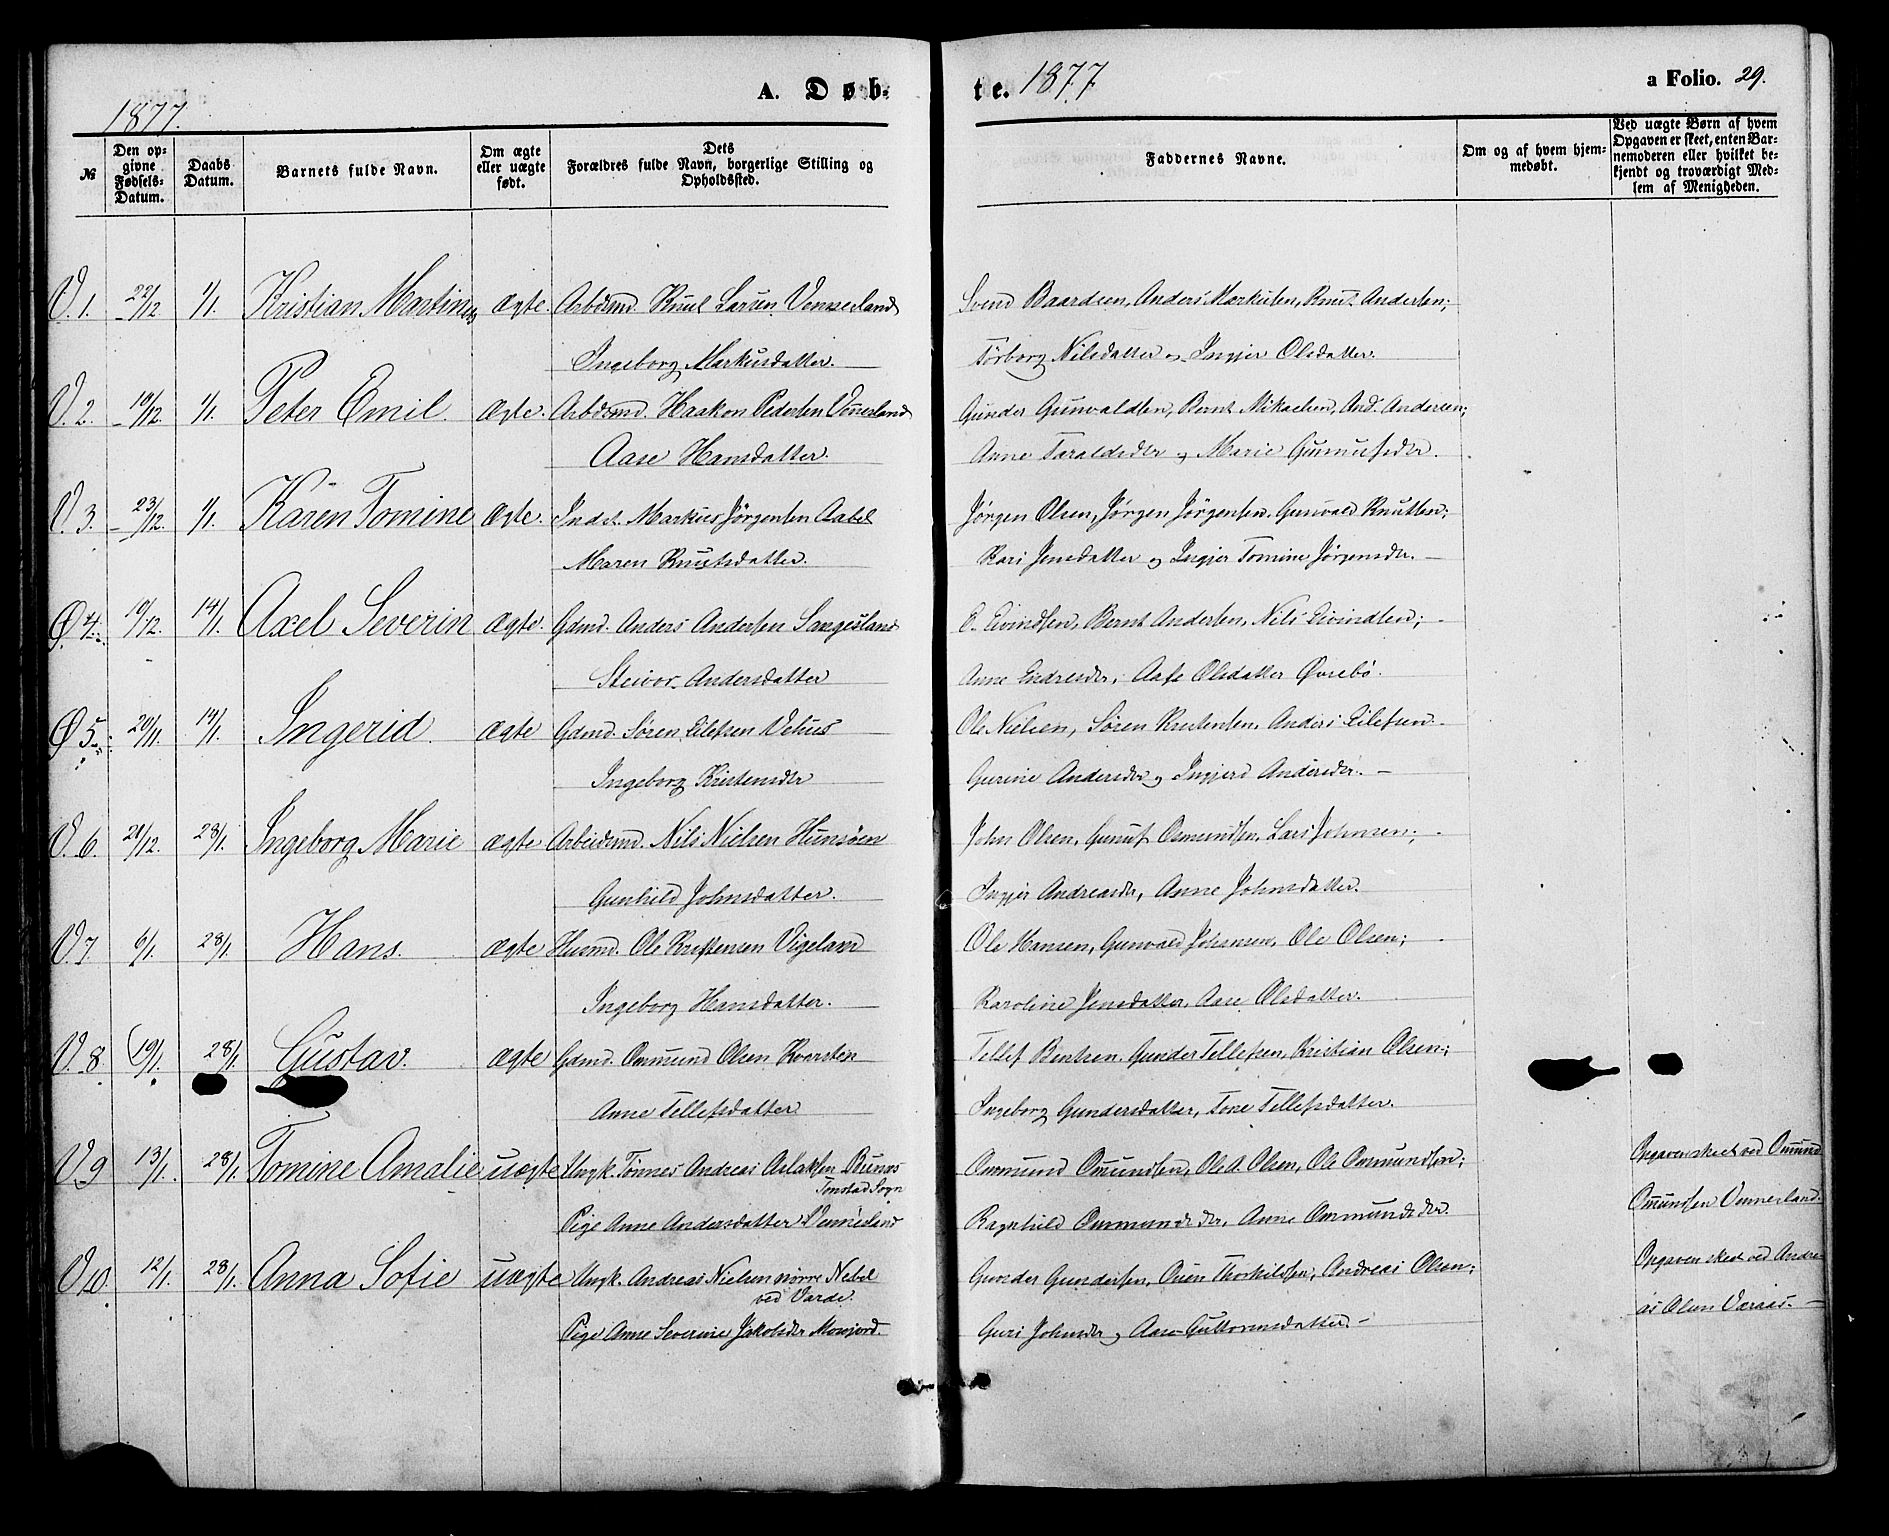 1877.
A. Døb-
te. 1877
a Folio. 29.
№
Den opgivne Fødsels-Datum.
Daabs Datum.
Barnets fulde Navn.
Om ægte eller uægte født.
Dets Forældres fulde Navn, borgerlige Stilling og Opholdssted.
Faddernes Navne.
Om og af hvem hjemmedøbt.
Ved uægte Børn af hvem Opgaven er skeet, enten Barnemoderen eller hvilket bekjendt og troværdigt Medlem af Menigheden.
V. 1. 22/12 1/1 Kristian Martinus ægte. Arbdsmd. Knut Larsen Vennesland Svend Baardsen, Anders Markusen, Knut Andersen;
Ingeborg Markusdatter. Torborg Nilsdatter og Ingjer Olsdatter.
V. 2. 10/12. 1/1 Peter Emil. ægte. Arbdsmd. Haakon Pedersen Vennesland Gunder Gunvaldsen, Bernt Mikaelsen, And. Andersen;
Aase Hansdatter. Anne Taraldsdtr og Marie Gunnufsdtr.
V. 3. 23/12. 1/1 Karen Tomine ægte. Indst. Markus Jörgensen Aabel Jørgen Olsen, Jørgen Jörgensen, Gunvald Knutsen;
Maren Knutsdatter. Kari Jensdatter og Ingjer Tomine Jørgensdr.
Ø 4. 10/12. 14/1 Axel Severin ægte. Gdmd. Anders Andersen Sangesland E. Eivindsen, Bernt Andersen, Nils Eivindsen;
Steivor Andersdatter Anne Endresdr, Aase Olsdatter Øvrebö.
Ø 5. 20/11. 14/1 Ingerid. ægte Gdmd. Søren Eilefsen Vehus Ole Nielsen, Søren Kristensen, Anders Eilefsen
Ingeborg Kristensdtr Gurine Andersdtr og Ingjerd Andersdtr.
V. 6. 21/12. 28/1. Ingeborg Marie ægte Arbeidsmd. Nils Nielsen Hunsöen John Olsen, Gunuf Osmundsen, Lars Johnsen;
Gunhild Johnsdatter. Ingjer Andreasdr, Anne Johnsdatter.
V. 7 6/1. 28/1. Hans. ægte Husmd. Ole Kristensen Vigeland Ole Hansen, Gunvald Johansen, Ole Olsen;
Ingeborg Hansdatter. Karoline Jensdatter, Aase Olsdatter.
V. 8. 19/1. 28/1. Gustav. ægte Gdmd. Ommund Olsen Kvarsten Tellef Bentsen, Gunder Tellefsen, Kristian Olsen;
Anne Tellefsdatter Ingeborg Gundersdatter, Tone Tellefsdatter.
V. 9 13/1. 28/1. Tomine Amalie uægte Ungk. Tønnes Andreas Aslaksen Bunes Ommund Omundsen, Ole A. Olsen, Ole Ommundsen; Opgaven skeet ved Omund
Tonstad Sogn
Pige Anne Andersdatter Vennesland Ragnhild Ommundsdr, Anne Ommundsdtr. Omundsen Vennesland.
V. 10. 12/1. 28/1. Anna Sofie uægte Ungk. Andreas Nielsen nörre Nebel Gunder Gundersen, Thorkildsen, Andreas Olsen; Opgaven skeet ved Andre-
ved Varde.
Pige Anne Severine Jakobsdtr Mosjord. Guri Johnsdr og Aase Guttormsdatter. as Olsen